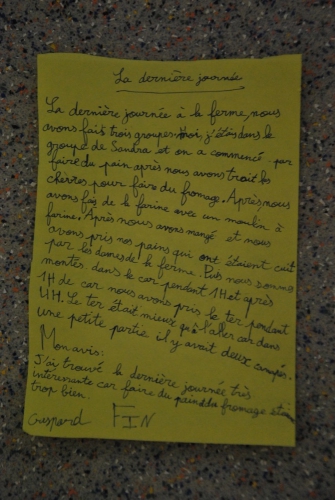 La dernière journée
La dernière journée à la ferme, nous
avons fait trois groupes moi j'étais dans le
groupe de Sandra et on a commencé par
faire du pain après nous avons trait les
chèvres pour faire du fromage. Après nous
avons fais de la farine avec un moulin à
farine. Après nous avons mangé et nous
avons pris nos pains qui ont étaient cuit
par les dames de la ferme. Puis nous somme
montés dans le car pendant 1H et après
1H de car nous avons pris le ter pendant
4H. Le ter était mieux qu'à l'aler car dans
une petite partie il y avait deux canapés.
Mon avis:
J'ai trouvé la dernière journée très
intérressante car faire du pain du fromage était
trop bien.
Gaspard FIN